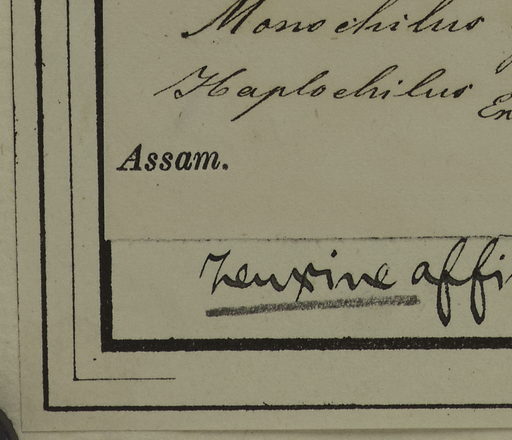 Monochilus
Haplochilus
En
Assam.
Zeuxine affi